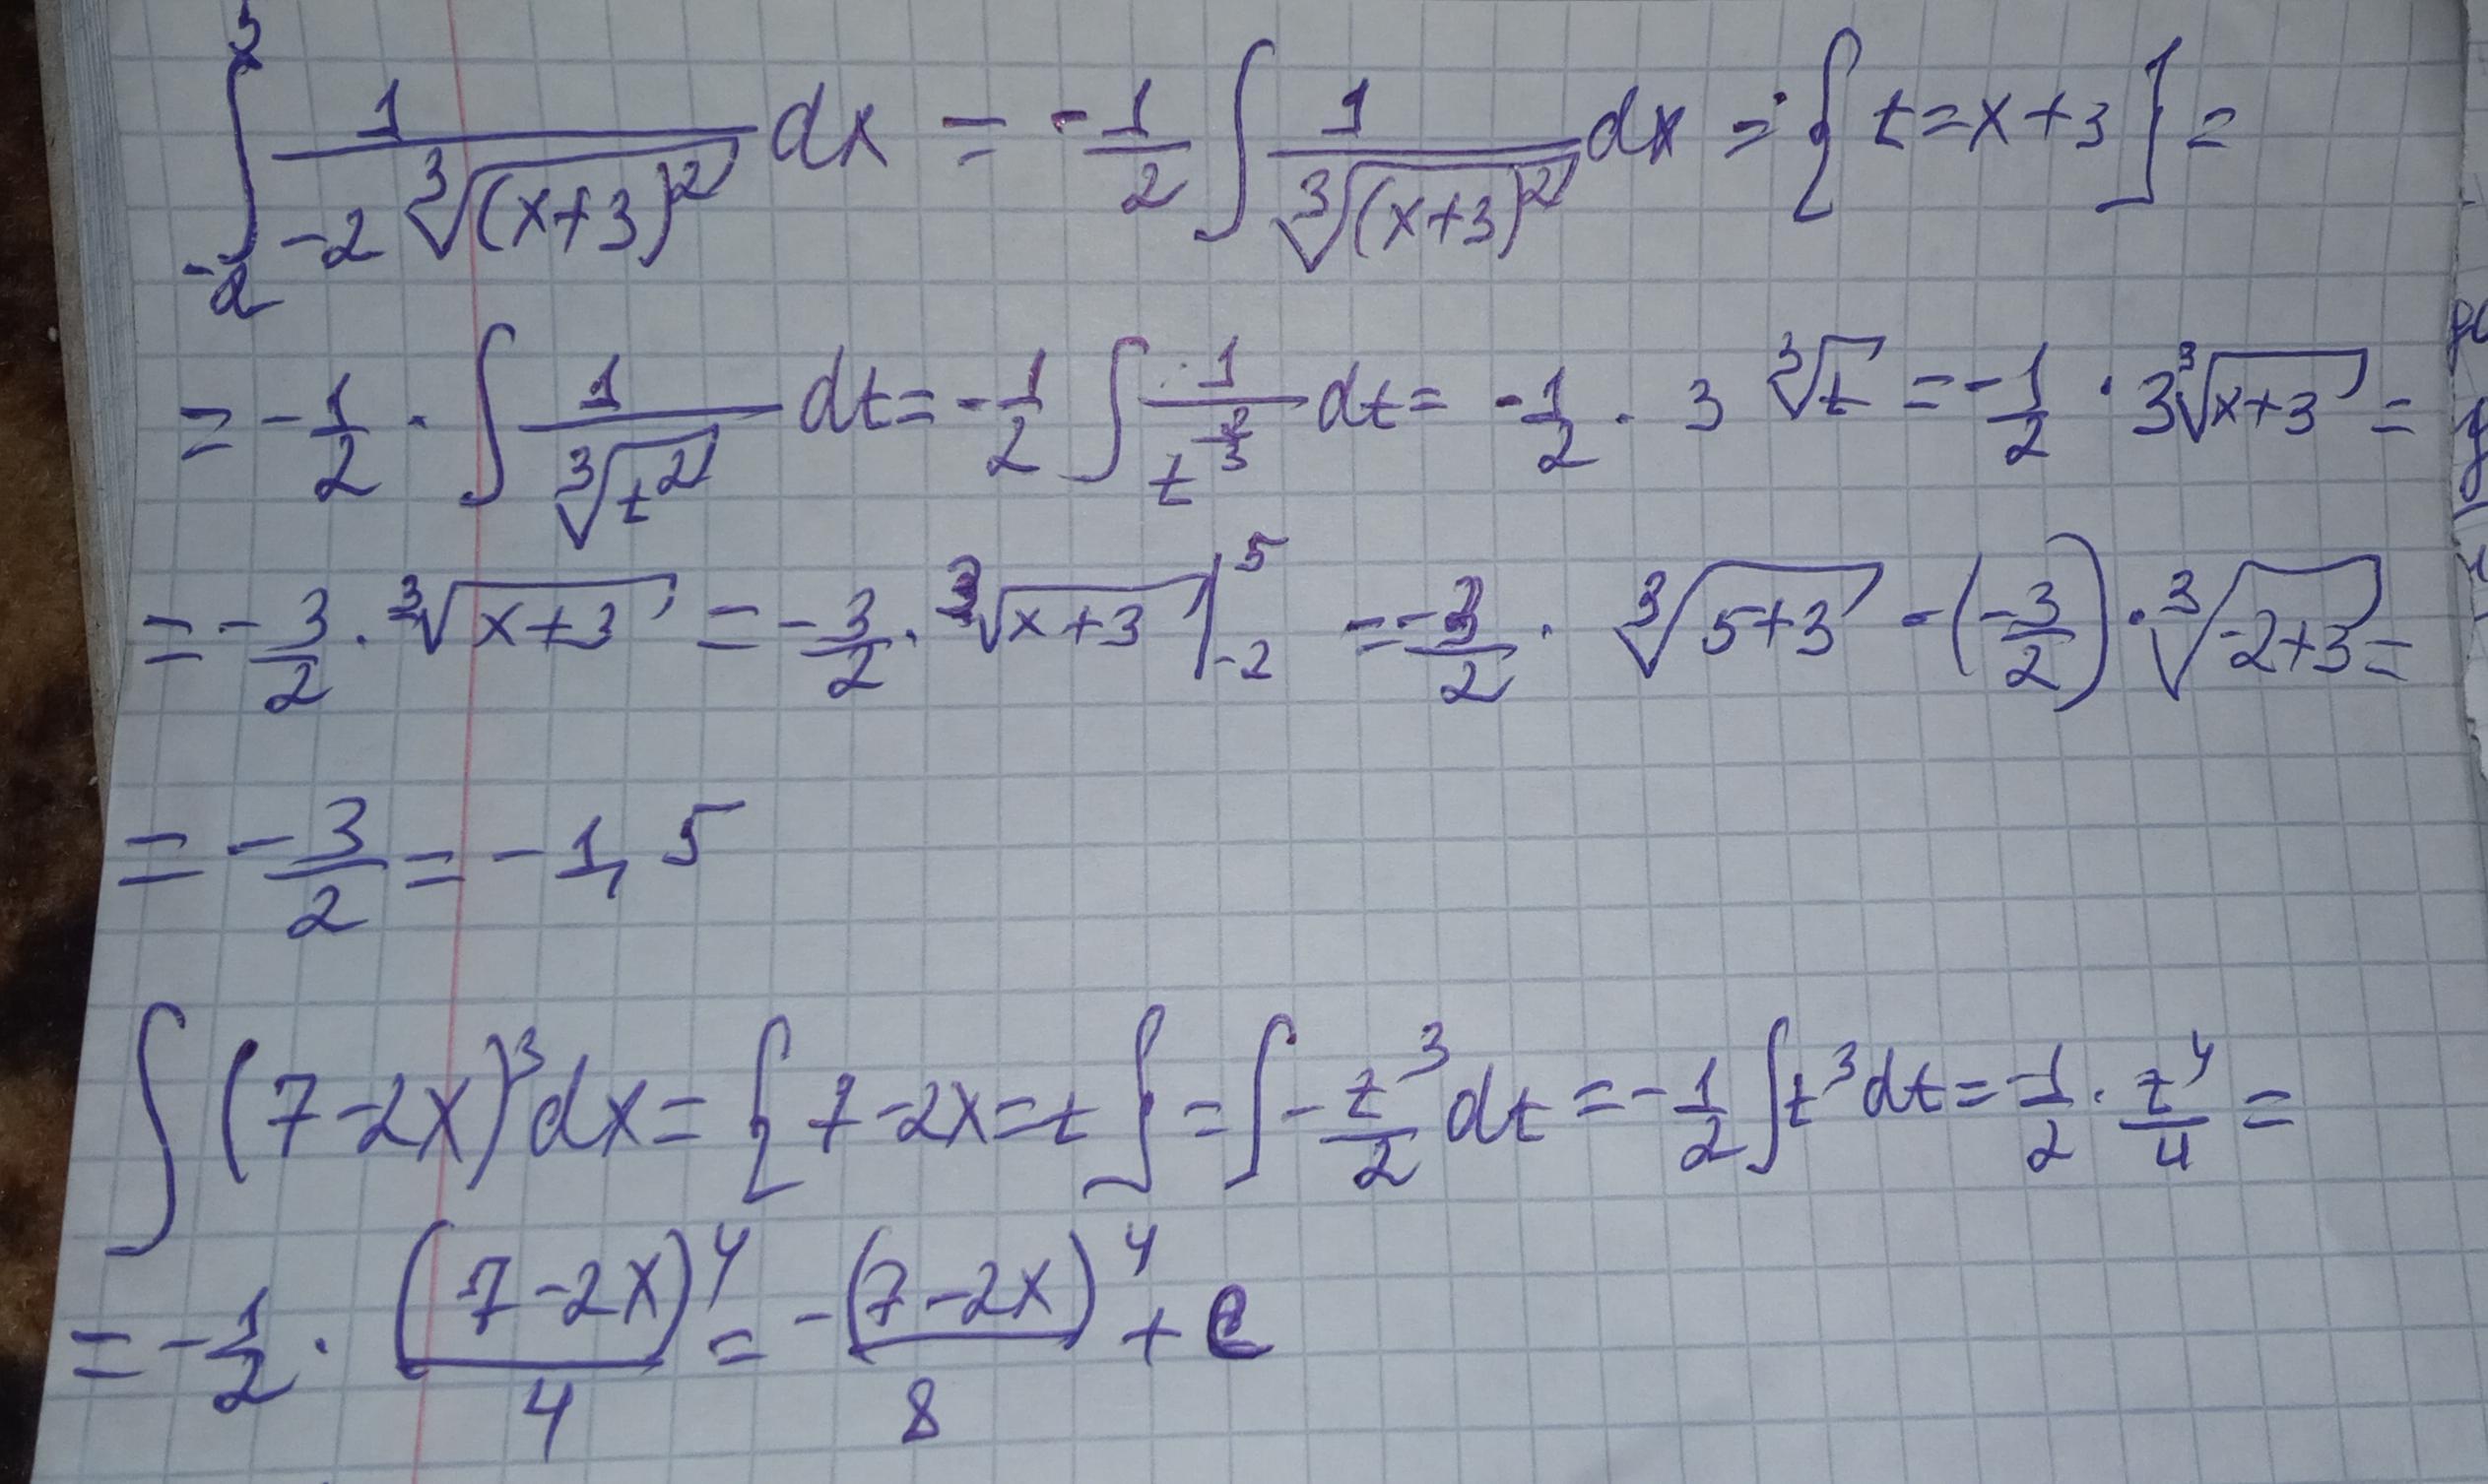 ∫₋₂⁵ 1/(-2 ∛((x+3)²)) dx = -1/2 ∫ 1/∛((x+3)²) dx = {t=x+3} =
= -1/2 · ∫ 1/∛(t²) dt = -1/2 ∫ 1/t^(2/3) dt = -1/2 · 3 ∛t = -1/2 · 3∛(x+3) =
= -3/2 · ∛(x+3) = -3/2 · ∛(x+3) |₋₂⁵ = -3/2 · ∛(5+3) - (-3/2) · ∛(-2+3) =
= -3/2 = -1,5
∫ (7-2x)³ dx = {7-2x=t} = ∫ -t³/2 dt = -1/2 ∫ t³ dt = -1/2 · t⁴/4 =
= -1/2 · (7-2x)⁴/4 = -(7-2x)⁴/8 + C